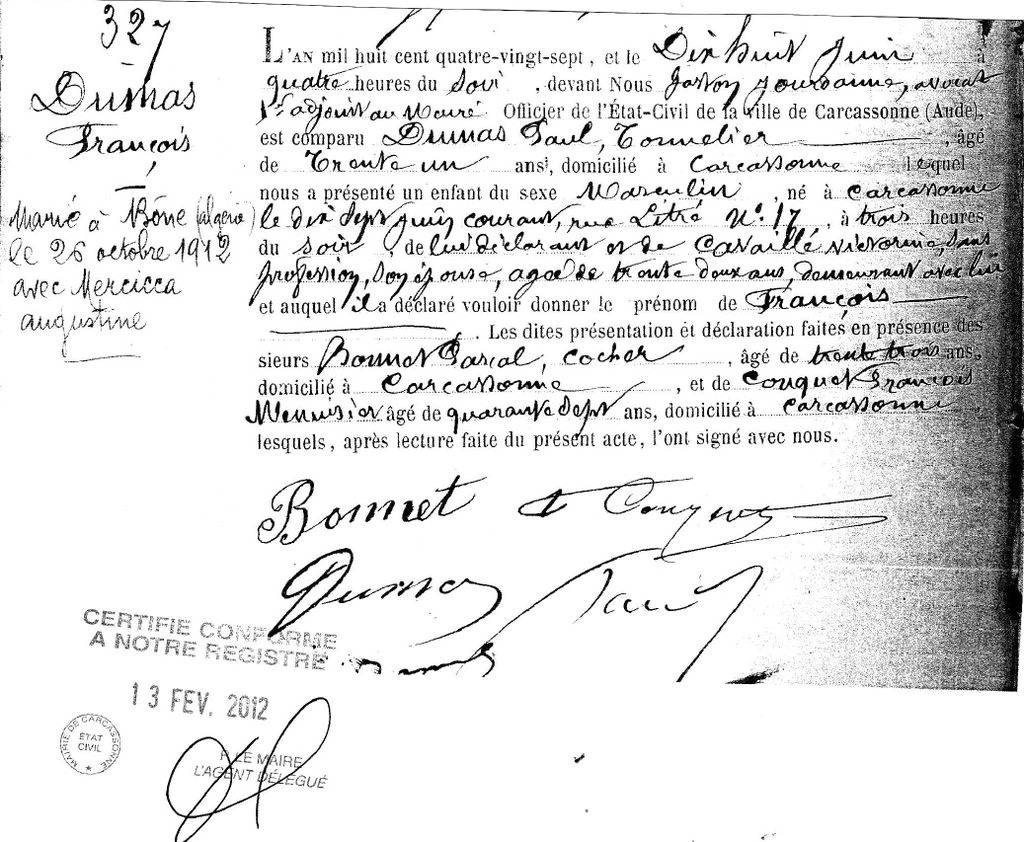 327
Dumas
François
Marié à Bône (Algérie)
le 26 octobre 1912
avec Mercicca
augustine
L'AN mil huit cent quatre-vingt-sept, et le Dix huit Juin à
quatre heures du Soir, devant Nous Gaston Jourdanne, avocat
1er adjoint au Maire Officier de l'État-Civil de la ville de Carcassonne (Aude),
est comparu Dumas Paul, Tonnelier, âgé
de Trente un ans, domicilié à Carcassonne lequel
nous a présenté un enfant du sexe Masculin, né à Carcassonne
le dix Sept Juin courant, rue Littré N°. 17, à trois heures
du soir, de lui déclarant et de Cavaillé Victorine, Sans
profession, Son épouse, agée de trente deux ans, demeurant avec lui
et auquel il a déclaré vouloir donner le prénom de François
. Les dites présentation et déclaration faites en présence des
sieurs Bonnet Pascal, Cocher, âgé de trente trois ans,
domicilié à Carcassonne, et de Couquet François
Menuisier âgé de quarante Sept ans, domicilié à Carcassonne
lesquels, après lecture faite du présent acte, l'ont signé avec nous.
Bonnet Couquet
Dumas Paul
CERTIFIE CONFORME
A NOTRE REGISTRE
13 FEV. 2012
MAIRIE DE CARCASSONNE
ETAT
CIVIL
P. LE MAIRE
L'AGENT DÉLÉGUÉ